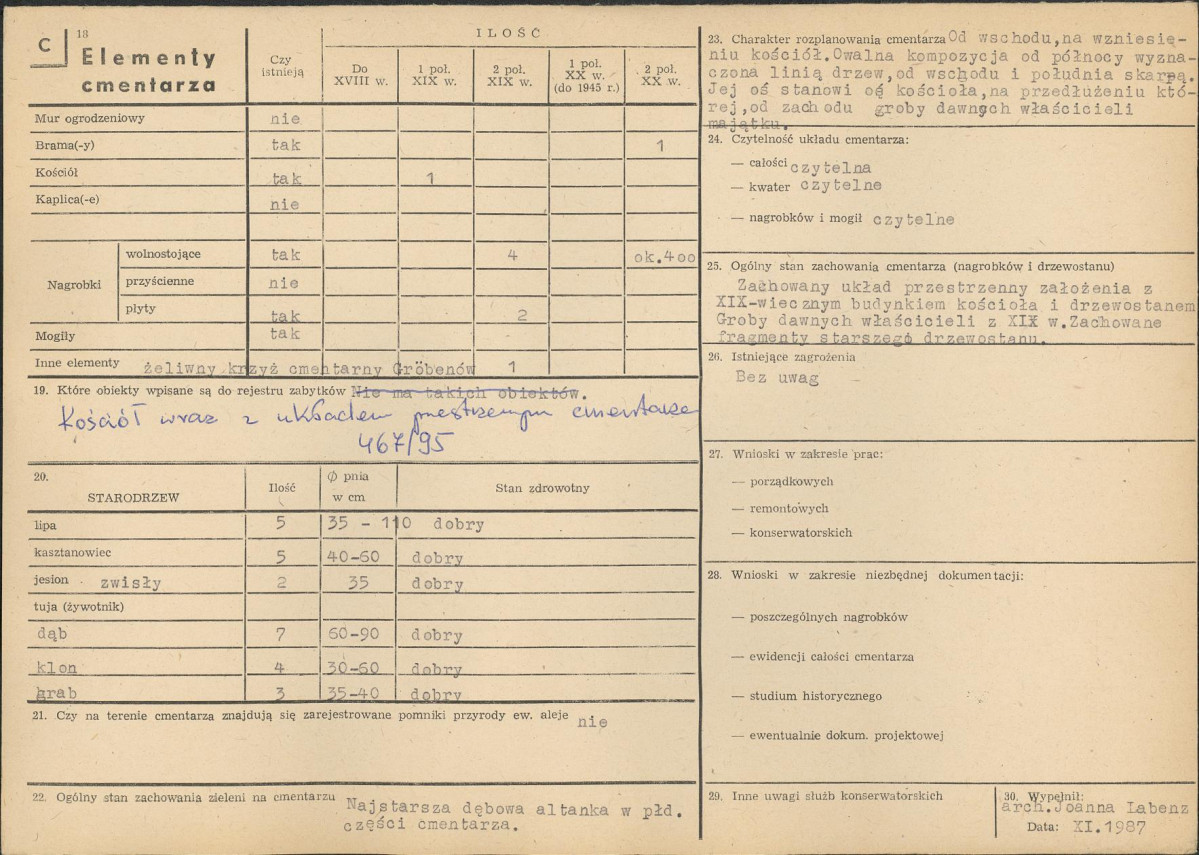 C
18
Elementy
cmentarza
Czy
istnieją
ILOŚĆ
Do
XVIII w.
1 poł.
XIX w.
2 poł.
XIX w.
1 poł.
XX w.
(do 1945 r.)
2 poł.
XX w.
Mur ogrodzeniowy nie
Brama(-y) tak 1
Kościół tak 1
Kaplica(-e) nie
Nagrobki
wolnostojące tak 4 ok.4oo
przyścienne nie
płyty tak 2
Mogiły tak
Inne elementy żeliwny krzyż cmentarny Gröbenów 1
19. Które obiekty wpisane są do rejestru zabytków Nie ma takich obiektów.
Kościół wraz z układem przestrzennym cmentarza
467/95
20.
STARODRZEW
Ilość
Ø pnia
w cm
Stan zdrowotny
lipa 5 35 - 110 dobry
kasztanowiec 5 40-60 dobry
jesion zwisły 2 35 dobry
tuja (żywotnik)
dąb 7 60-90 dobry
klon 4 30-60 dobry
grab 3 35-40 dobry
21. Czy na terenie cmentarza znajdują się zarejestrowane pomniki przyrody ew. aleje nie
22. Ogólny stan zachowania zieleni na cmentarzu Najstarsza dębowa altanka w płd.
części cmentarza.
23. Charakter rozplanowania cmentarza Od wschodu,na wzniesię-
niu kościół.Owalna kompozycja od północy wyzna-
czona linią drzew,od wschodu i południa skarpą.
Jej oś stanowi oś kościoła,na przedłużeniu któ-
rej,od zachodu groby dawnych właścicieli
majątku.
24. Czytelność układu cmentarza:
— całości czytelna
— kwater czytelne
— nagrobków i mogił czytelne
25. Ogólny stan zachowania cmentarza (nagrobków i drzewostanu)
Zachowany układ przestrzenny założenia z
XIX-wiecznym budynkiem kościoła i drzewostanem
Groby dawnych właścicieli z XIX w.Zachowane
fragmenty starszego drzewostanu.
26. Istniejące zagrożenia
Bez uwag
27. Wnioski w zakresie prac:
— porządkowych
— remontowych
— konserwatorskich
28. Wnioski w zakresie niezbędnej dokumentacji:
— poszczególnych nagrobków
— ewidencji całości cmentarza
— studium historycznego
— ewentualnie dokum. projektowej
29. Inne uwagi służb konserwatorskich
30. Wypełnił:
arch.Joanna Labenz
Data: XI.1987